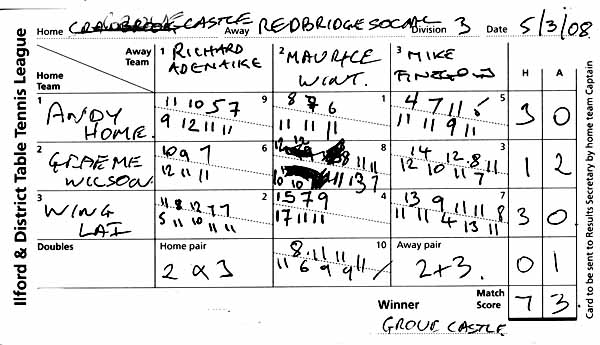 Ilford & District Table Tennis League
Home CASTLE Away REDBRIDGE SOCIAL Division 3 Date 5/3/08
Away Team 1 RICHARD ADENAIKE 2 MAURICE WINT. 3 MIKE H A
Home Team
1 ANDY HOME. 11 10 5 7 9 8 7 6 1 4 7 11 5 3 0
9 12 11 11 11 11 11 11 11 9 11
2 GRAEME WILSON 10 9 7 6 8 11 11 8 14 12 8 11 3 1 2
12 11 11 11 13 7 12 10 11 7
3 WING LAI 11 8 12 7 7 2 15 7 9 4 13 9 11 11 8 7 3 0
5 11 10 11 11 17 11 11 11 11 4 13 11
Doubles Home pair 8 11 11 11 10 Away pair
2 & 3 11 6 9 9 2 + 3. 0 1
Winner Match Score 7 3
GROVE CASTLE
Card to be sent to Results Secretary by home team Captain